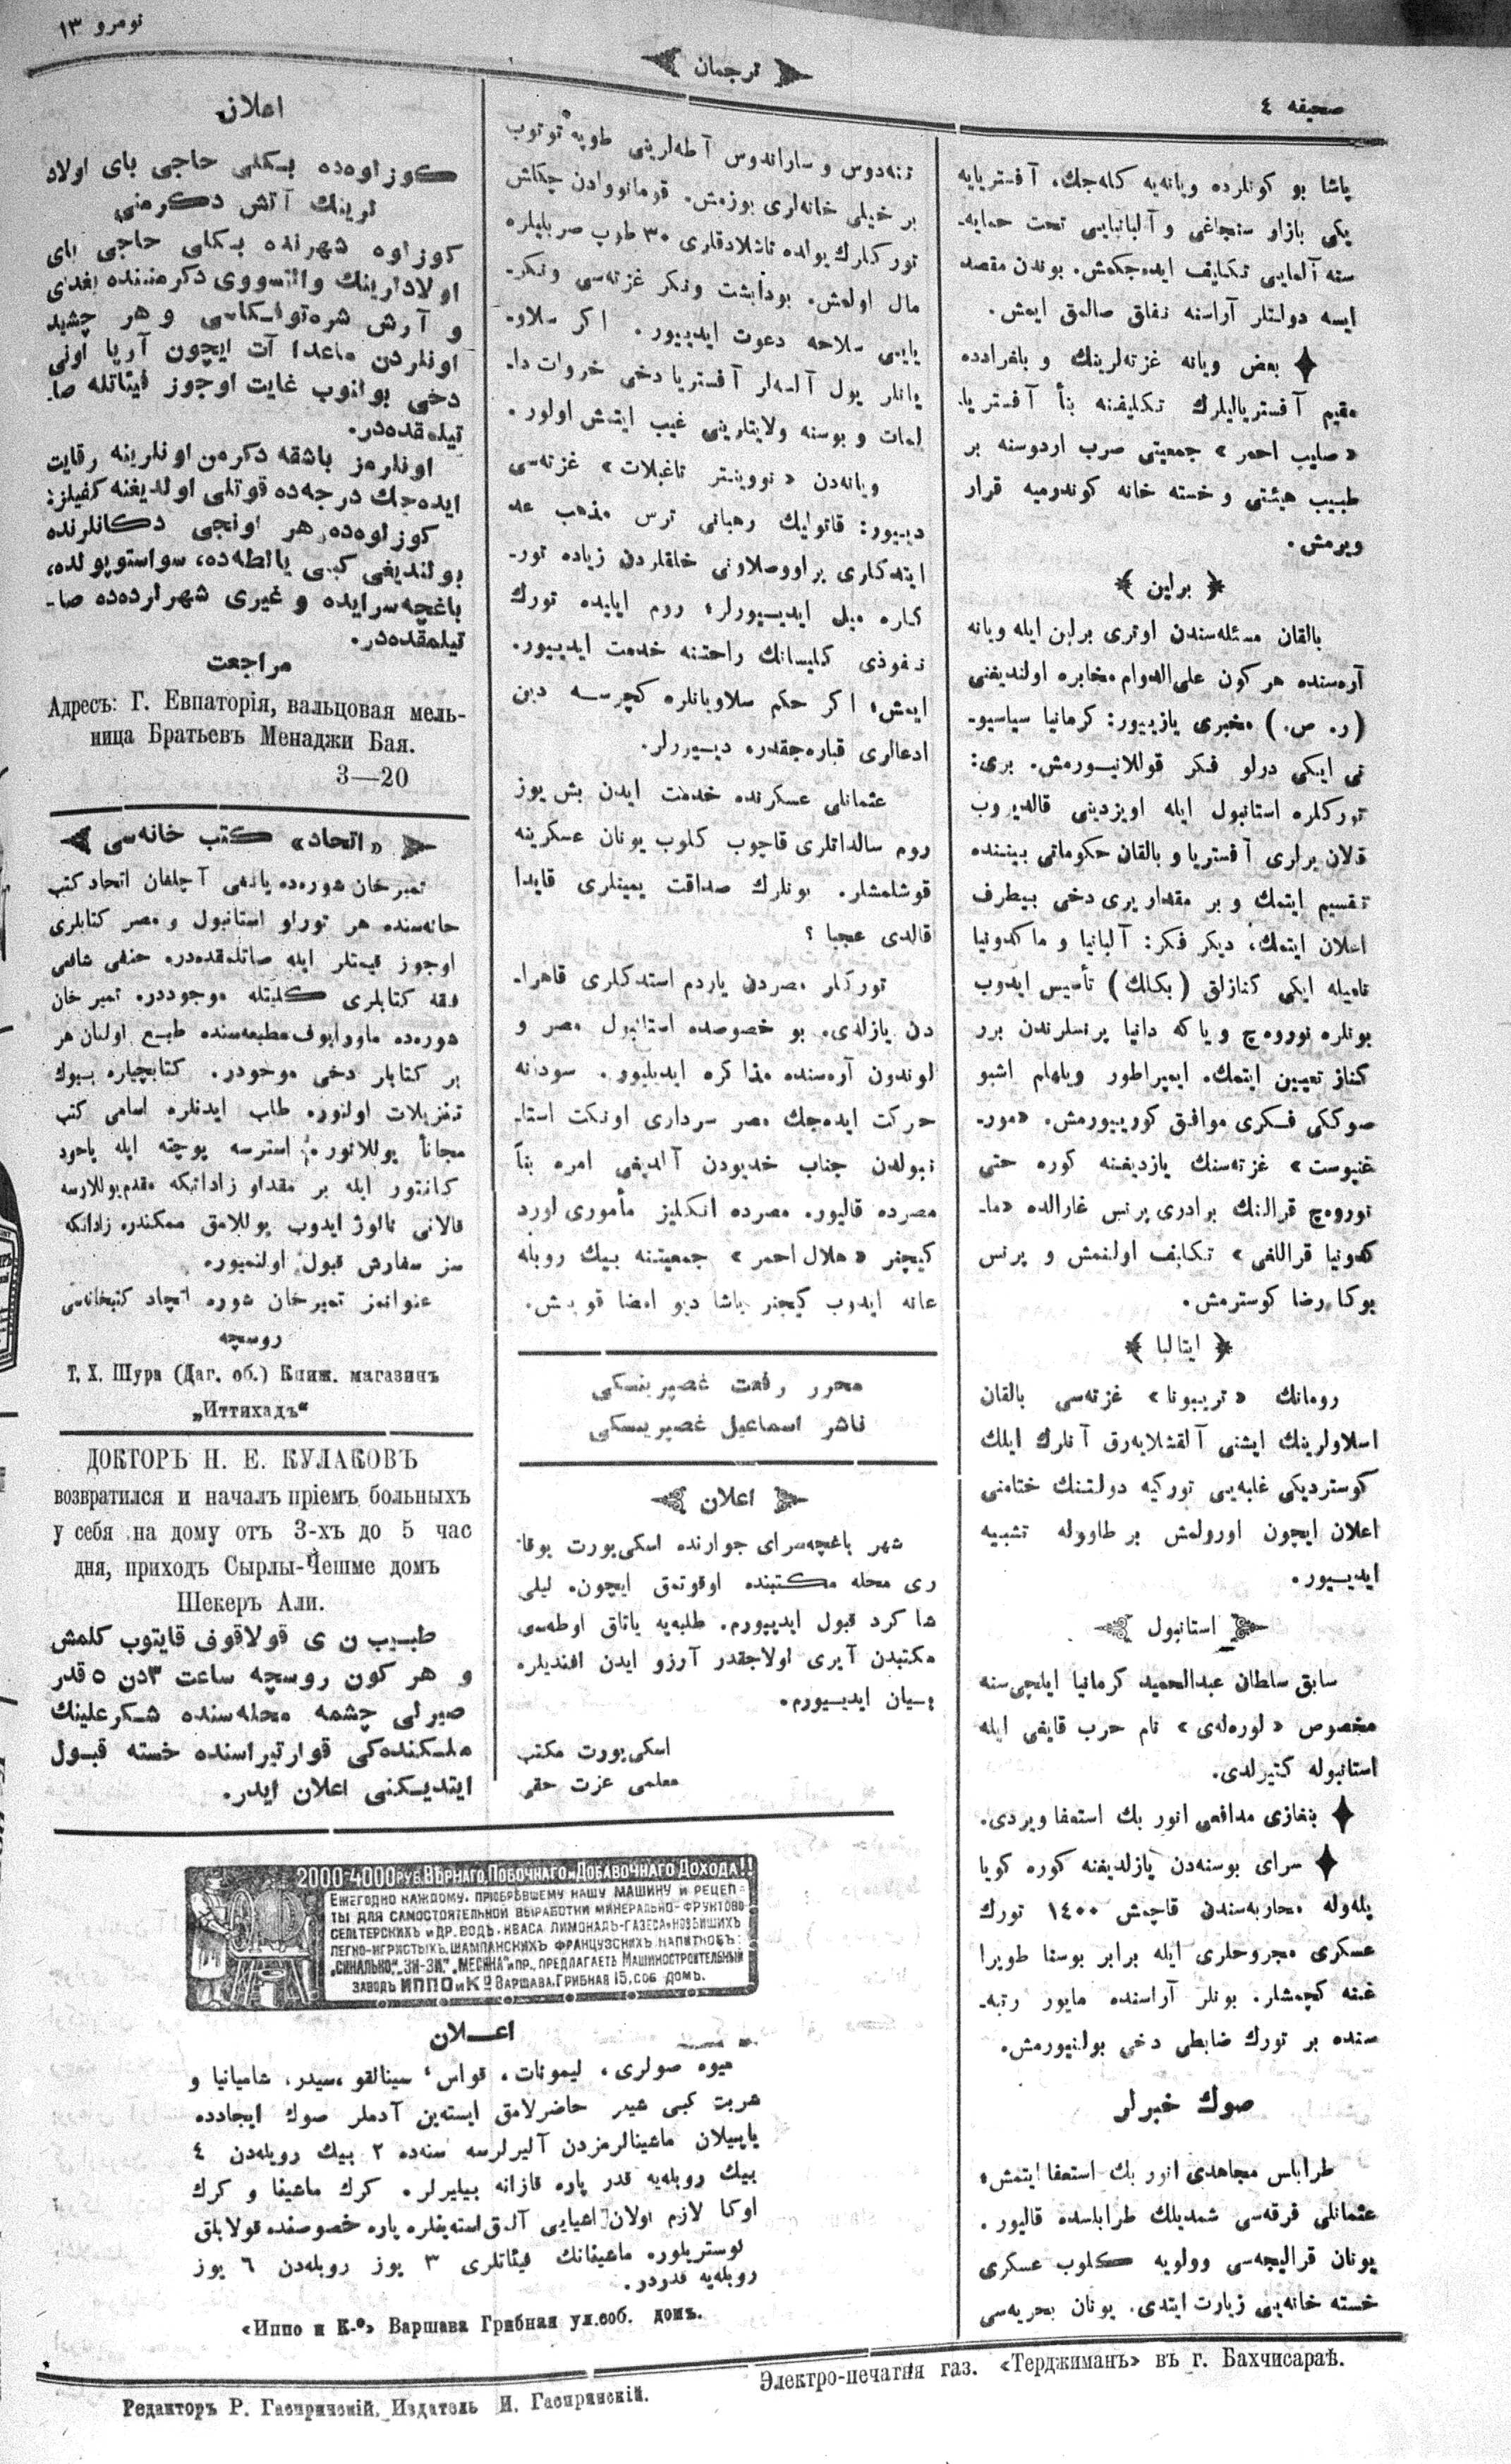 صحیفه ٤
ترجمان
نومرو ١٣
پاشا بو كونلرده ویانه‌یه كله‌جك، آفستریایه
یكی بازار سنجاغی و آلبانیایی تحت حمایه‌ـ
سنه آلمایی تكلیف ایده‌جكمش. بوندن مقصد
ایسه دولتلر آراسنه نفاق صالمق ایمش.
بعض ویانه غزته‌لرینك و بلغرادده
مقیم آفستریالیلرك تكلیفنه بنأ آفستریا
« صلیب احمر » جمعیتی صرب اردوسنه بر
طبیب هیئتی و خسته خانه كوندرمیه قرار
ویرمش.
برلین
بالقان مسئله‌سندن اوتری برلین ایله ویانه
آره‌سنده هر كون علی‌الدوام مخابره اولندیغنی
(ر. ص.) مخبری یازییور: كرمانیا سیاسیو‌ـ
نی ایكی درلو فكر قوللانیورمش. بری:
توركلره استانبول ایله اویزدینی قالدیروب
قلان یرلری آفستریا و بالقان حكوماتی بیننده
تقسیم ایتمك و بر مقدار یری دخی بیطرف
اعلان ایتمك، دیكر فكر: آلبانیا و ماكدونیا
نامیله ایكی كنازلق (بكلك) تأسیس ایدوب
بونلره نوروه‌چ و یا كه دانیا پرنسلرندن برر
كناز تعیین ایتمك. ایمپراطور ویلهام اشبو
صوككی فكری موافق كورییورمش. «مور‌ـ
غنپوست» غزته‌سنك یازدیغنه كوره حتی
نوروه‌چ قرالنك برادری پرنس غارالده «ما‌ـ
كدونیا قراللغی» تكلیف اولنمش و پرنس
بوكا رضا كوسترمش.
ایتالیا
رومانك «تریبونا» غزته‌سی بالقان
اسلاولرینك ایشنی آلقشلایه‌رق آنلرك ایلك
كوستردیكی غلبه‌یی توركیه دولتنك ختامنی
اعلان ایچون اورولمش بر طاووله تشبیه
ایدییور.
استانبول
سابق سلطان عبدالحمید كرمانیا ایلچی‌سنه
مخصوص «لوره‌له‌ی» نام حرب قایغی ایله
استانبوله كتیرلدی.
بنغازی مدافعی انور بك استعفا ویردی.
سرای بوسنه‌دن یازلدیغنه كوره كویا
پله‌وله محاربه‌سندن قاچمش ١٤٠٠ تورك
عسكری مجروحلری ایله برابر بوسنا طوپرا
غنه كچمشلر. بونلر آراسنده مایور رتبه‌ـ
سنده بر تورك ضابطی دخی بولنیورمش.
صوك خبرلر
طرابلس مجاهدی انور بك استعفا ایتمش،
عثمانلی فرقه‌سی شمدیلك طرابلسده قالیور.
یونان قرالیچه‌سی وولویه كلوب عسكری
خسته خانه‌یی زیارت ایتدی. یونان بحریه‌سی
تنه‌دوس و ساراندوس آطه‌لرینی طوپه توتوب
بر خیلی خانه‌لری بوزمش. قومانووادن چكلش
توركلرك یولده تاشلادقلری ٣٠ طوپ صربلیلره
مال اولمش. بوداپشت ونكر غزته‌سی ونكر‌ـ
یایی سلاحه دعوت ایدییور. اكر سلاو‌ـ
یانلر یول آلسه‌لر آفستریا دخی خروات دا‌ـ
لمات و بوسنه ولایتلرینی غیب ایتمش اولور.
ویانه‌دن «نووینتر تاغبلات» غزته‌سی
دییور: قاتولیك رهبانی ترس مذهب عد
ایتدكلری پراووصلاونی خلقلردن زیاده تور‌ـ
كلره میل ایدییورلر، روم ایلیده تورك
نفوذی كلیسانك راحتنه خدمت ایدییور.
ایمش، اكر حكم سلاویانلره كچرسه دین
ادعالری قباره‌جقدر، دییورلر.
عثمانلی عسكرنده خدمت ایدن بش یوز
روم سالداتلری قاچوب كلوب یونان عسكرینه
قوشلمشلر. بونلرك صداقت یمینلری قایدا
قالدی عجبا ؟
توركلر مصردن یاردم استدكلری قاهرا‌ـ
دن یازلدی. بو خصوصده استانبول مصر و
لوندون آره‌سنده مذاكره ایدیلیور. سودانه
حركت ایده‌جك مصر سرداری اونكت استا‌ـ
نبولدن جناب خدیودن آلدیغی امره بنأ
مصرده قالیور. مصرده انكلیز مأموری لورد
كیچنر «هلال احمر» جمعیتنه بیك روبله
عانه ایدوب كیچنر پاشا دیو امضا قویمش.
محرر رفعت غصپرینسكی
ناشر اسماعیل غصپرینسكی
اعلان
شهر باغچه‌سرای جوارنده اسكی‌یورت یوقا
ری محله مكتبنده اوقوتمق ایچون، لیلی
شاكرد قبول ایدییورم. طلبه‌یه یاتاق اوطه‌سی
مكتبدن آیری اولاجقدر آرزو ایدن افندیلره
بیان ایدییورم.
اسكی‌یورت مكتب
معلمی عزت حقی
اعلان
كوزلوه‌ده بكلی حاجی بای اولاد
لرینك آتش دكرمنی
كوزلوه شهرنده بكلی حاجی بای
اولادلرینك والتسووی دكرمننده بغدای
و آرش شره‌تولسكاسی و هر چشید
اونلردن ماعدا آت ایچون آرپا اونی
دخی بولنوب غایت اوجوز فیئاتله صا‌ـ
تیلمقده‌در.
اونلرمز باشقه دكرمن اونلرینه رقابت
ایده‌جك درجه‌ده قوتلی اولدیغنه كفیلز:
كوزلوه‌ده هر اونجی دكانلرنده
بولندیغی كبی یالطه‌ده، سواستوپولده،
باغچه‌سرایده و غیری شهرلرده‌ده صا‌ـ
تیلمقده‌در.
مراجعت
Адресъ: Г. Евпаторія, вальцовая мель-
ница Братьевъ Менаджи Бая.
3—20
«اتحاد» كتب خانه‌سی
تمیرخان شوره‌ده یاڭی آچلغان اتحاد كتب
خانه‌سنده هر تورلو استانبول و مصر كتابلری
اوجوز قیمتلر ایله صاتلمقده‌در. حنفی شافعی
فقه كتابلری كلیتله موجوددر. تمیر خان
شوره‌ده ماورایوف مطبعه‌سنده طبع اولنان هر
بر كتابلر دخی موجودر. كتابچیلره بیوك
تنزیلات اولنور. طلب ایدنلره اسامی كتب
مجانأ یوللانور. استرسه پوچته ایله یاخود
كانتور ایله بر مقدار زاداتكه مقدم یوللارسه
قالانی نالوژ ایدوب یوللامق ممكندر. زاداتكه
سز سفارش قبول اولنمیور.
عنوانمز تمیرخان شوره اتحاد كتبخانه‌سی
روسچه
Т. Х. Шура (Даг. об.) Книж. магазинъ
„Иттихадъ“
ДОКТОРЪ Н. Е. КУЛАКОВЪ
возвратился и началъ пріемъ больныхъ
у себя на дому отъ 3-хъ до 5 час
дня, приходъ Сырлы-Чешме домъ
Шекеръ Али.
طبیب ن ی قولاقوف قایتوب كلمش
و هر كون روسچه ساعت ٣دن ٥ قدر
صیرلی چشمه محله‌سنده شكرعلینك
ملكنده‌كی قوارتیراسنده خسته قبول
ایتدیكنی اعلان ایدر.
2000-4000 руб. Вѣрнаго, Побочнаго и Добавочнаго Дохода!!
Ежегодно каждому, пріобрѣвшему нашу машину и рецеп-
ты для самостоятельной выработки минерально-фруктово
сельтерскихъ и др. водъ, кваса лимонадъ-газеса и новѣйшихъ
легко-игристыхъ, шампанскихъ французскихъ напитковъ:
„Синалько“, „Зи-зи“, „Месяна“ и пр., предлагаетъ Машиностроительный
заводъ ИППО и Ко Варшава, Грибная 15, соб. домъ.
اعلان
میوه صولری، لیمونات، قواس، سینالقو، سیدر، شامپانیا و
شربت كبی شیلر حاضرلامق ایسته‌ین آدملر صوك ایجادده
یاپیلان ماشینالرمزدن آلیرلرسه سنه‌ده ٢ بیك روبله‌دن ٤
بیك روبله‌یه قدر پاره قازانه بیلیرلر. كرك ماشینا و كرك
اوكا لازم اولان اشیایی آلمق استه‌ینلره پاره خصوصنده قولایلق
كوستریلور. ماشینانك فیئاتلری ٣ یوز روبله‌دن ٦ یوز
روبله‌یه قدردر.
«Иппо и К-о» Варшава Грибная ул. соб. домъ.
Электро-печатня газ. «Терджиманъ» въ г. Бахчисараѣ.
Редакторъ Р. Гаспринскій. Издатель И. Гаспринскій.